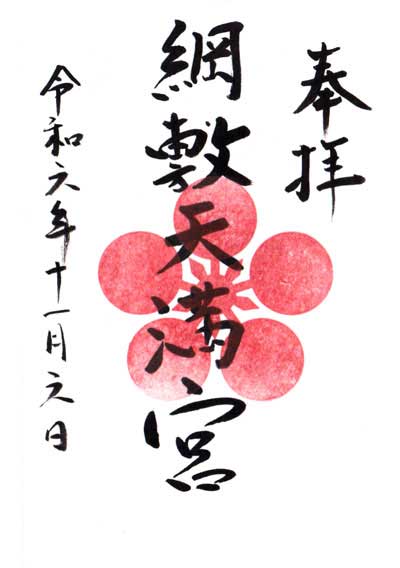 奉拝
綱敷天満宮
令和六年十一月六日